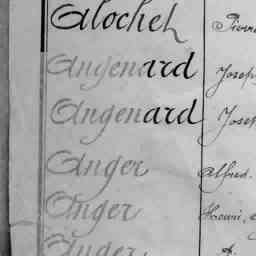 Alochet
Angenard Joseph
Angenard Joseph
Anger Alfred.
Anger Henri,
Anger